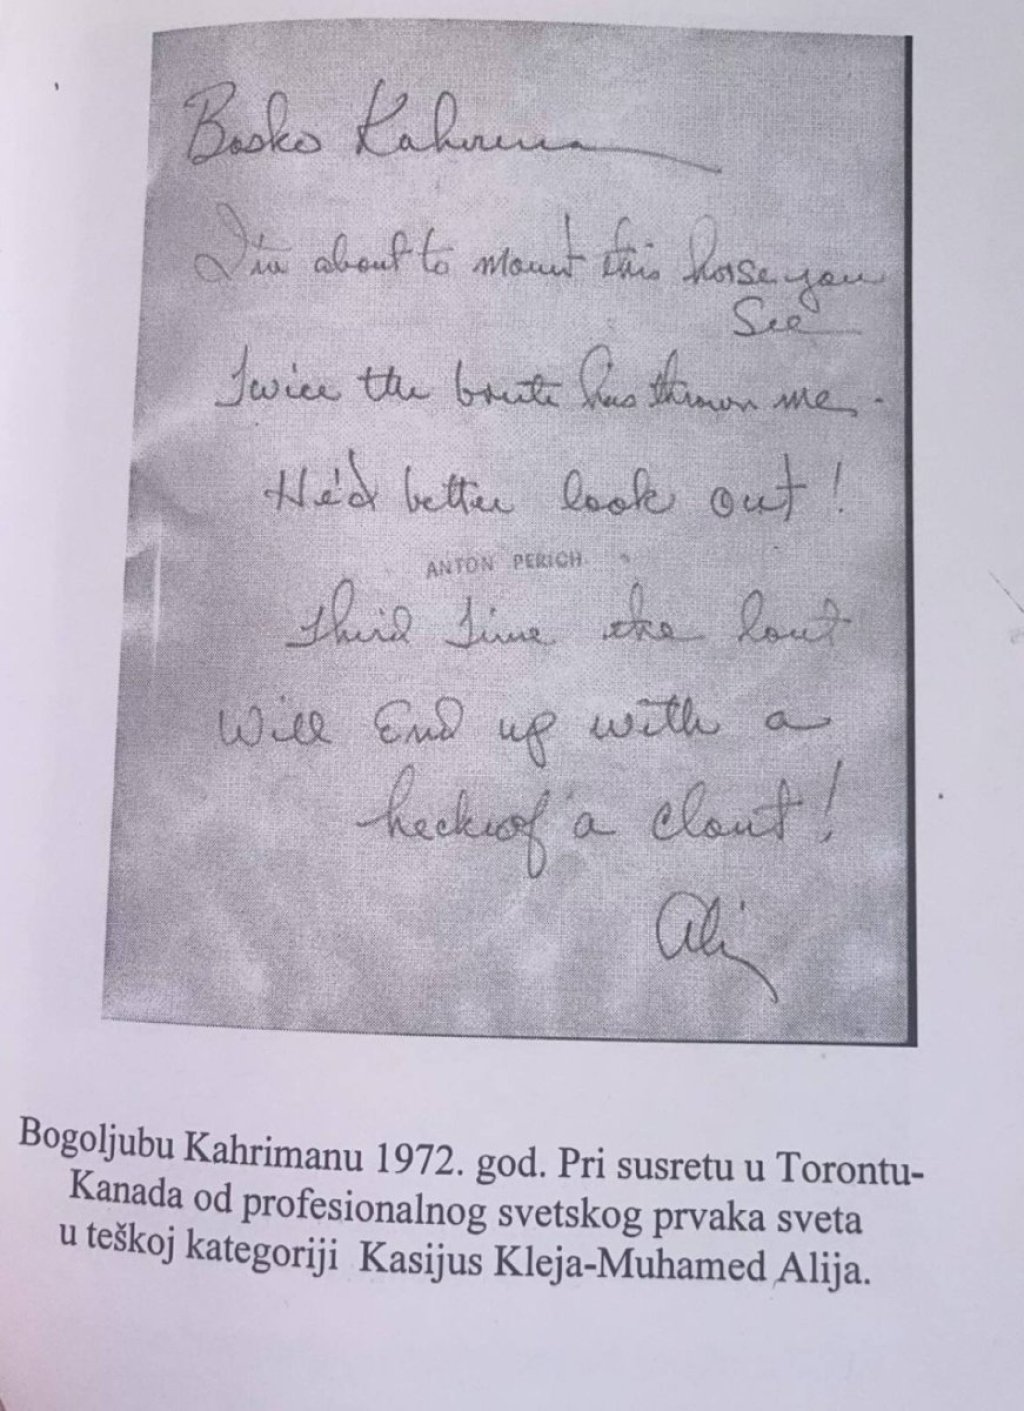 Bosko Kahrima
I'm about to mount this horse you
See
Twice the brute has thrown me.
He'd better look out!
ANTON PERICH
Third Time the lout
Will End up with a
heckuof a clout!
Ali
Bogoljubu Kahrimanu 1972. god. Pri susretu u Torontu-
Kanada od profesionalnog svetskog prvaka sveta
u teškoj kategoriji Kasijus Kleja-Muhamed Alija.